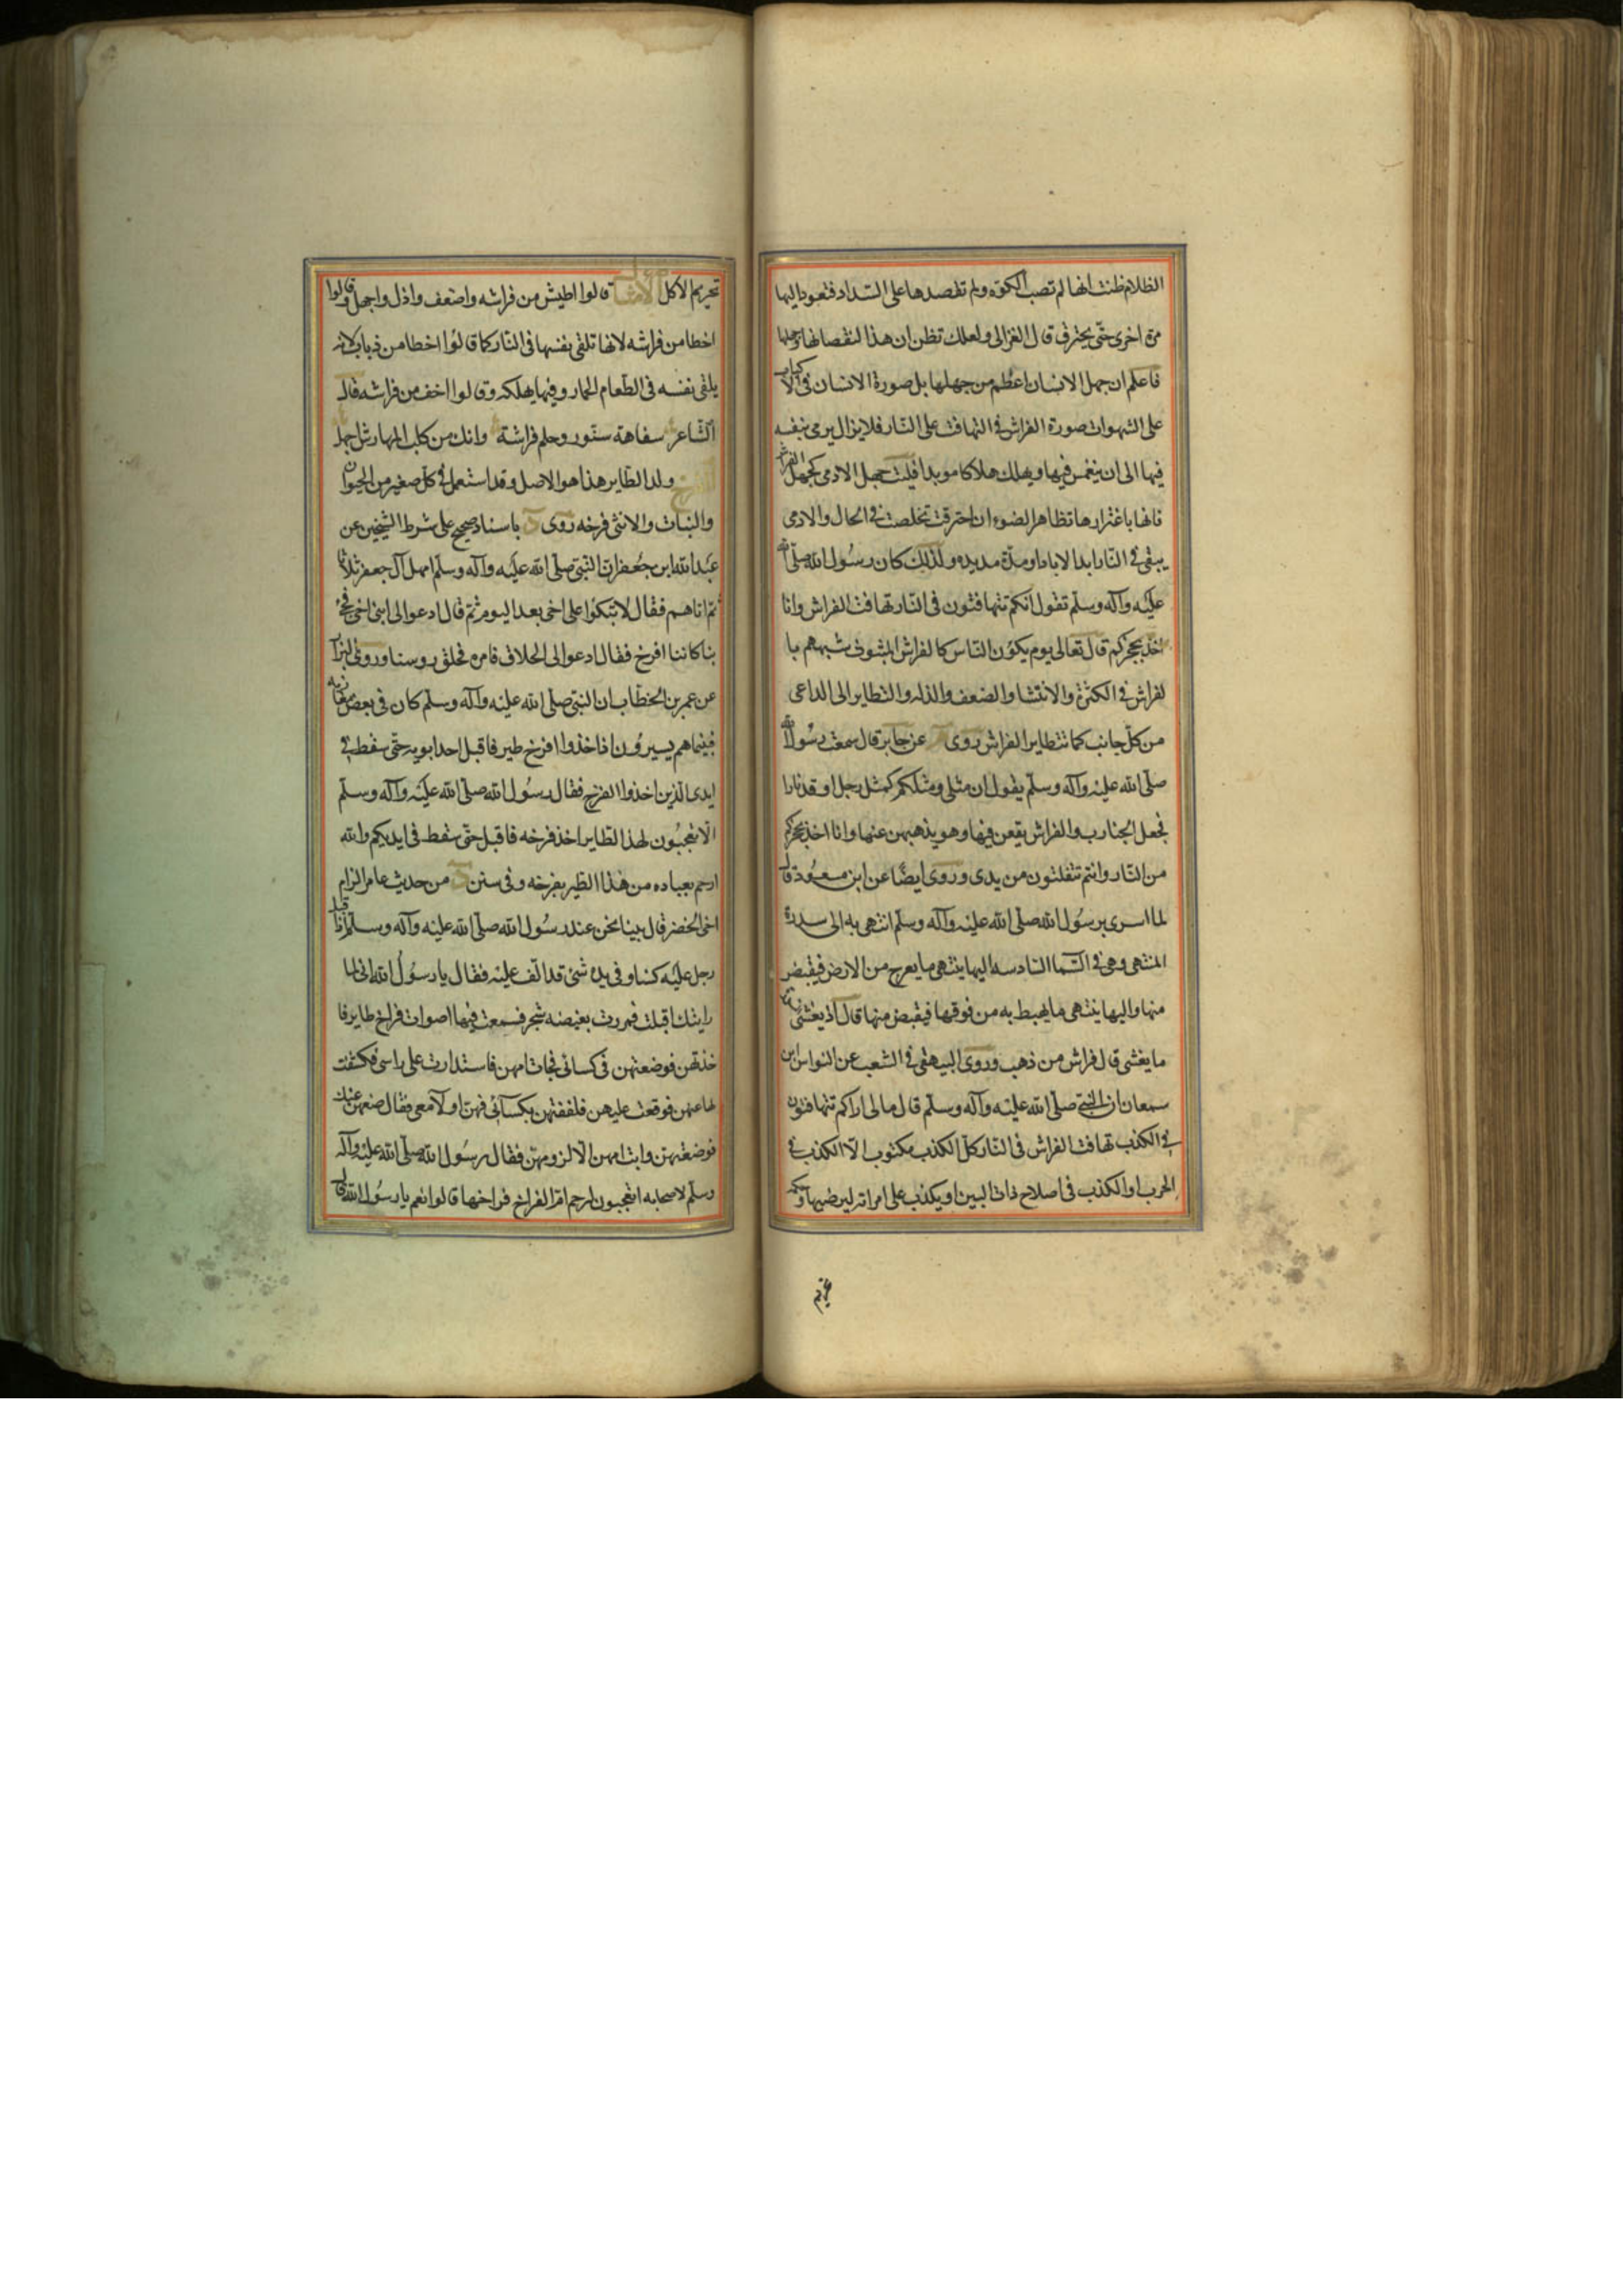 الظلام ظنت انها لم تصب الكوة ولم تقصدها على السداد فتعود اليها
مرة اخرى حتى يحترق قال الغزالى ولعلك تظن ان هذا لنقصانها وجهلها
فاعلم ان جهل الانسان اعظم من جهلها بل صورة الانسان فى الاكباب
على الشهوات صورة الفراش فى التهافت على النار فلا يزال يرمى بنفسه
فيها الى ان ينغمس فيها ويهلك هلاكا موبدا فليت جهل الادمى كجهل الفراش
فانها باغترارها تظاهر الضوء ان احترقت تخلصت فى الحال والادمى
يبقى فى النار ابد الاباد او مدة مديده ولذلك كان رسول الله صلى الله
عليه وآله وسلم تقول انكم تتهافتون فى النار تهافت الفراش وانا
اخذ بحجزكم قال تعالى يوم يكون الناس كالفراش المبثوث شبههم با
لفراش فى الكثرة والانتشا والضعف والذله والتطاير الى الداعى
من كل جانب كما تتطاير الفراش روى عن جابر قال سمعت رسول الله
صلى الله عليه وآله وسلم يقول ان مثلى ومثلكم كمثل رجل اوقد نارا
فجعل الجنادب والفراش يقعن فيها وهو يذهبهن عنها وانا اخذ بحجزكم
من النار وانتم تتفلتون من يدى وروى ايضا عن ابن مسعود قال
لما اسرى برسول الله صلى الله عليه وآله وسلم انتهى به الى سدرة
المنتهى وهى فى السما السادسه اليها ينتهى ما يعرج من الارض فيقبض
منها واليها ينتهى ما يهبط به من فوقها فيقبض منها قال اذ يغشى
ما يغشى قال فراش من ذهب وروى البيهقى فى الشعب عن النواس ابن
سمعان ان النبى صلى الله عليه وآله وسلم قال مالى اراكم تتهافتون
فى الكذب تهافت الفراش فى النار كل الكذب مكتوب الا الكذب فى
الحرب او الكذب فى اصلاح ذات البين او يكذب على امراته ليرضيها
تحريم الاكل الامثال قالوا اطيش من فراشه واضعف واذل واجهل وقالوا
اخطا من فراشه لانها تلقى نفسها فى النار كما قالوا اخطا من ذباب لانه
يلقى نفسه فى الطعام الحار وفيها يهلكه وقالوا اخف من فراشه قال
الشاعر سفاهة سنور وحلم فراشة وانك من كلب المهارش اجهل
الفرخ ولد الطاير هذا هو الاصل وقد استعمل فى كل صغير من الحيوان
والنبات والانثى فرخه روى د باسناد صحيح على شرط الشيخين عن
عبد الله ابن جعفر ان النبى صلى الله عليه وآله وسلم امهل آل جعفر ثلاثا
ثم اتاهم فقال لا تبكوا على اخى بعد اليوم ثم قال ادعوا لى ابنى اخى فجئ
بنا كاننا افرخ فقال ادعوا لى الحلاق فامره فحلق روسنا وروى البزار
عن عمر بن الخطاب ان النبى صلى الله عليه وآله وسلم كان فى بعض مغازيه
فبينما هم يسيرون اذ اخذوا افرخ طير فاقبل احد ابويه حتى سقط فى
ايدى الذين اخذوا الفرخ فقال رسول الله صلى الله عليه وآله وسلم
الا تعجبون لهذا الطاير اخذ فرخه فاقبل حتى سقط فى ايديكم والله
ارحم بعباده من هذا الطير بفرخه وفى سنن د من حديث عامر الرام
اخى الخضر قال بينا نحن عند رسول الله صلى الله عليه وآله وسلم اذا قبل
رجل عليه كسا وفى يده شئ قد التف عليه فقال يا رسول الله انى لما
رايتك اقبلت فمررت بغيضه شجر فسمعت فيها اصوات فراخ طاير فا
خذتهن فوضعتهن فى كسائى فجات امهن فاستدارت على راسى فكشفت
لها عنهن فوقعت عليهن فلففتهن بكسائى فهن اولا معى فقال ضعهن عنك
فوضعتهن وابت امهن الا لزومهن فقال رسول الله صلى الله عليه وآله
وسلم لاصحابه اتعجبون لرحم ام الفراخ فراخها قالوا نعم يا رسول الله